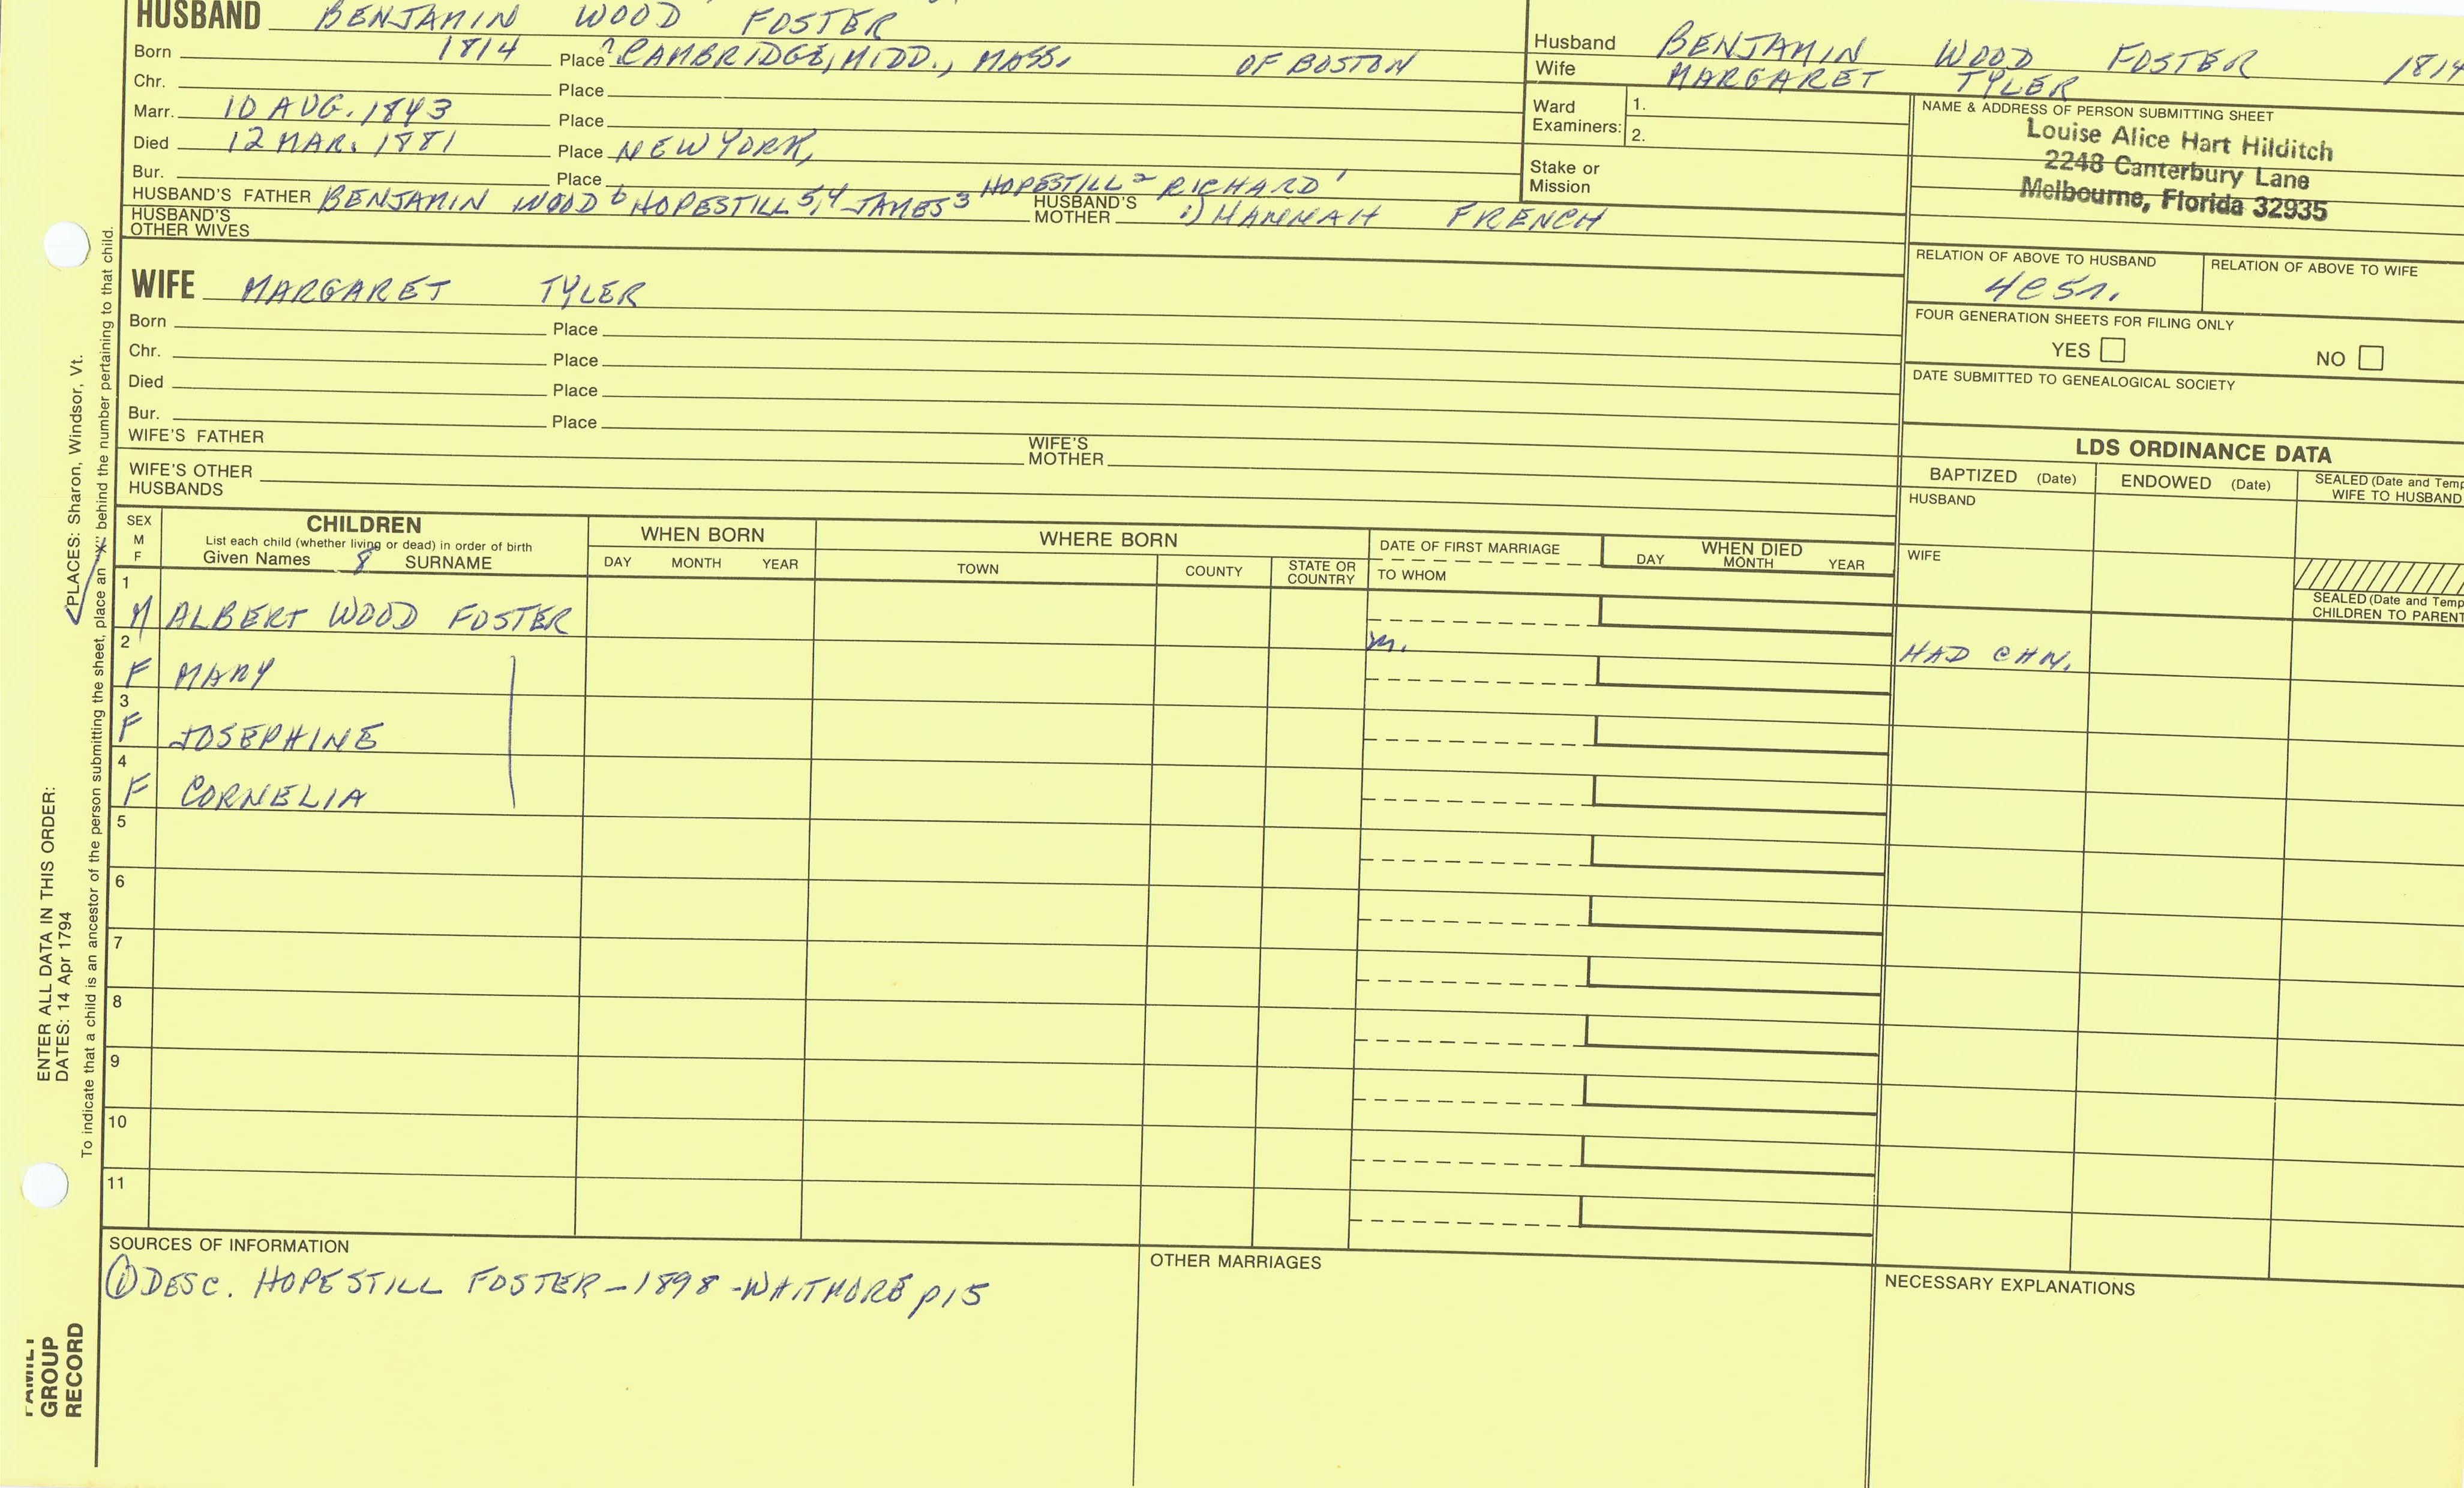 HUSBAND BENJAMIN WOOD FOSTER
Born 1814 Place ? CAMBRIDGE, MIDD., MASS. OF BOSTON
Chr. Place
Marr. 10 AUG. 1843 Place
Died 12 MAR. 1881 Place NEW YORK,
Bur. Place
HUSBAND'S FATHER BENJAMIN WOOD 6 HOPESTILL 5,4 JAMES 3 HOPESTILL 2 RICHARD 1 HUSBAND'S MOTHER 1) HANNAH FRENCH
HUSBAND'S OTHER WIVES
Husband BENJAMIN WOOD FOSTER 1814
Wife MARGARET TYLER
Ward Examiners: 1.
2.
Stake or Mission
NAME & ADDRESS OF PERSON SUBMITTING SHEET
Louise Alice Hart Hilditch
2248 Canterbury Lane
Melbourne, Florida 32935
RELATION OF ABOVE TO HUSBAND RELATION OF ABOVE TO WIFE
4C5r.
FOUR GENERATION SHEETS FOR FILING ONLY
YES NO
DATE SUBMITTED TO GENEALOGICAL SOCIETY
WIFE MARGARET TYLER
Born Place
Chr. Place
Died Place
Bur. Place
WIFE'S FATHER WIFE'S MOTHER
WIFE'S OTHER HUSBANDS
LDS ORDINANCE DATA
BAPTIZED (Date) ENDOWED (Date) SEALED (Date and Temp
WIFE TO HUSBAND
HUSBAND
WIFE
SEALED (Date and Temp
CHILDREN TO PARENT
SEX M F
CHILDREN
List each child (whether living or dead) in order of birth
Given Names 8 SURNAME
WHEN BORN
DAY MONTH YEAR
WHERE BORN
TOWN COUNTY STATE OR COUNTRY
DATE OF FIRST MARRIAGE
TO WHOM
WHEN DIED
DAY MONTH YEAR
1
M ALBERT WOOD FOSTER m. HAD CHN.
2
F MARY
3
F JOSEPHINE
4
F CORNELIA
5
6
7
8
9
10
11
SOURCES OF INFORMATION
① DESC. HOPESTILL FOSTER - 1898 - WHITMORE p15
OTHER MARRIAGES
NECESSARY EXPLANATIONS
To indicate that a child is an ancestor of the person submitting the sheet, place an "X" behind the number pertaining to that child.
ENTER ALL DATA IN THIS ORDER:
DATES: 14 Apr 1794
PLACES: Sharon, Windsor, Vt.
FAMILY
GROUP
RECORD